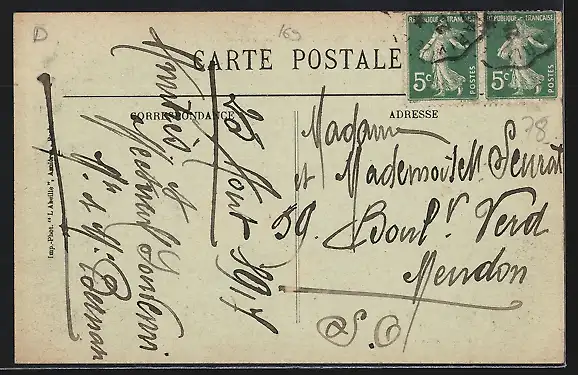 D
169
CARTE POSTALE
RÉPUBLIQUE FRANÇAISE
5c
POSTES
RÉPUBLIQUE FRANÇAISE
5c
POSTES
CORRESPONDANCE
ADRESSE
78
Imp.-Phot. "L'Abeille"
Amitiés et
Meilleurs Souvenir
Mr et Mme
20 Août 1917
Madame
et Mademoiselle Seurat
59. Boulr. Verd
Meudon
S. O